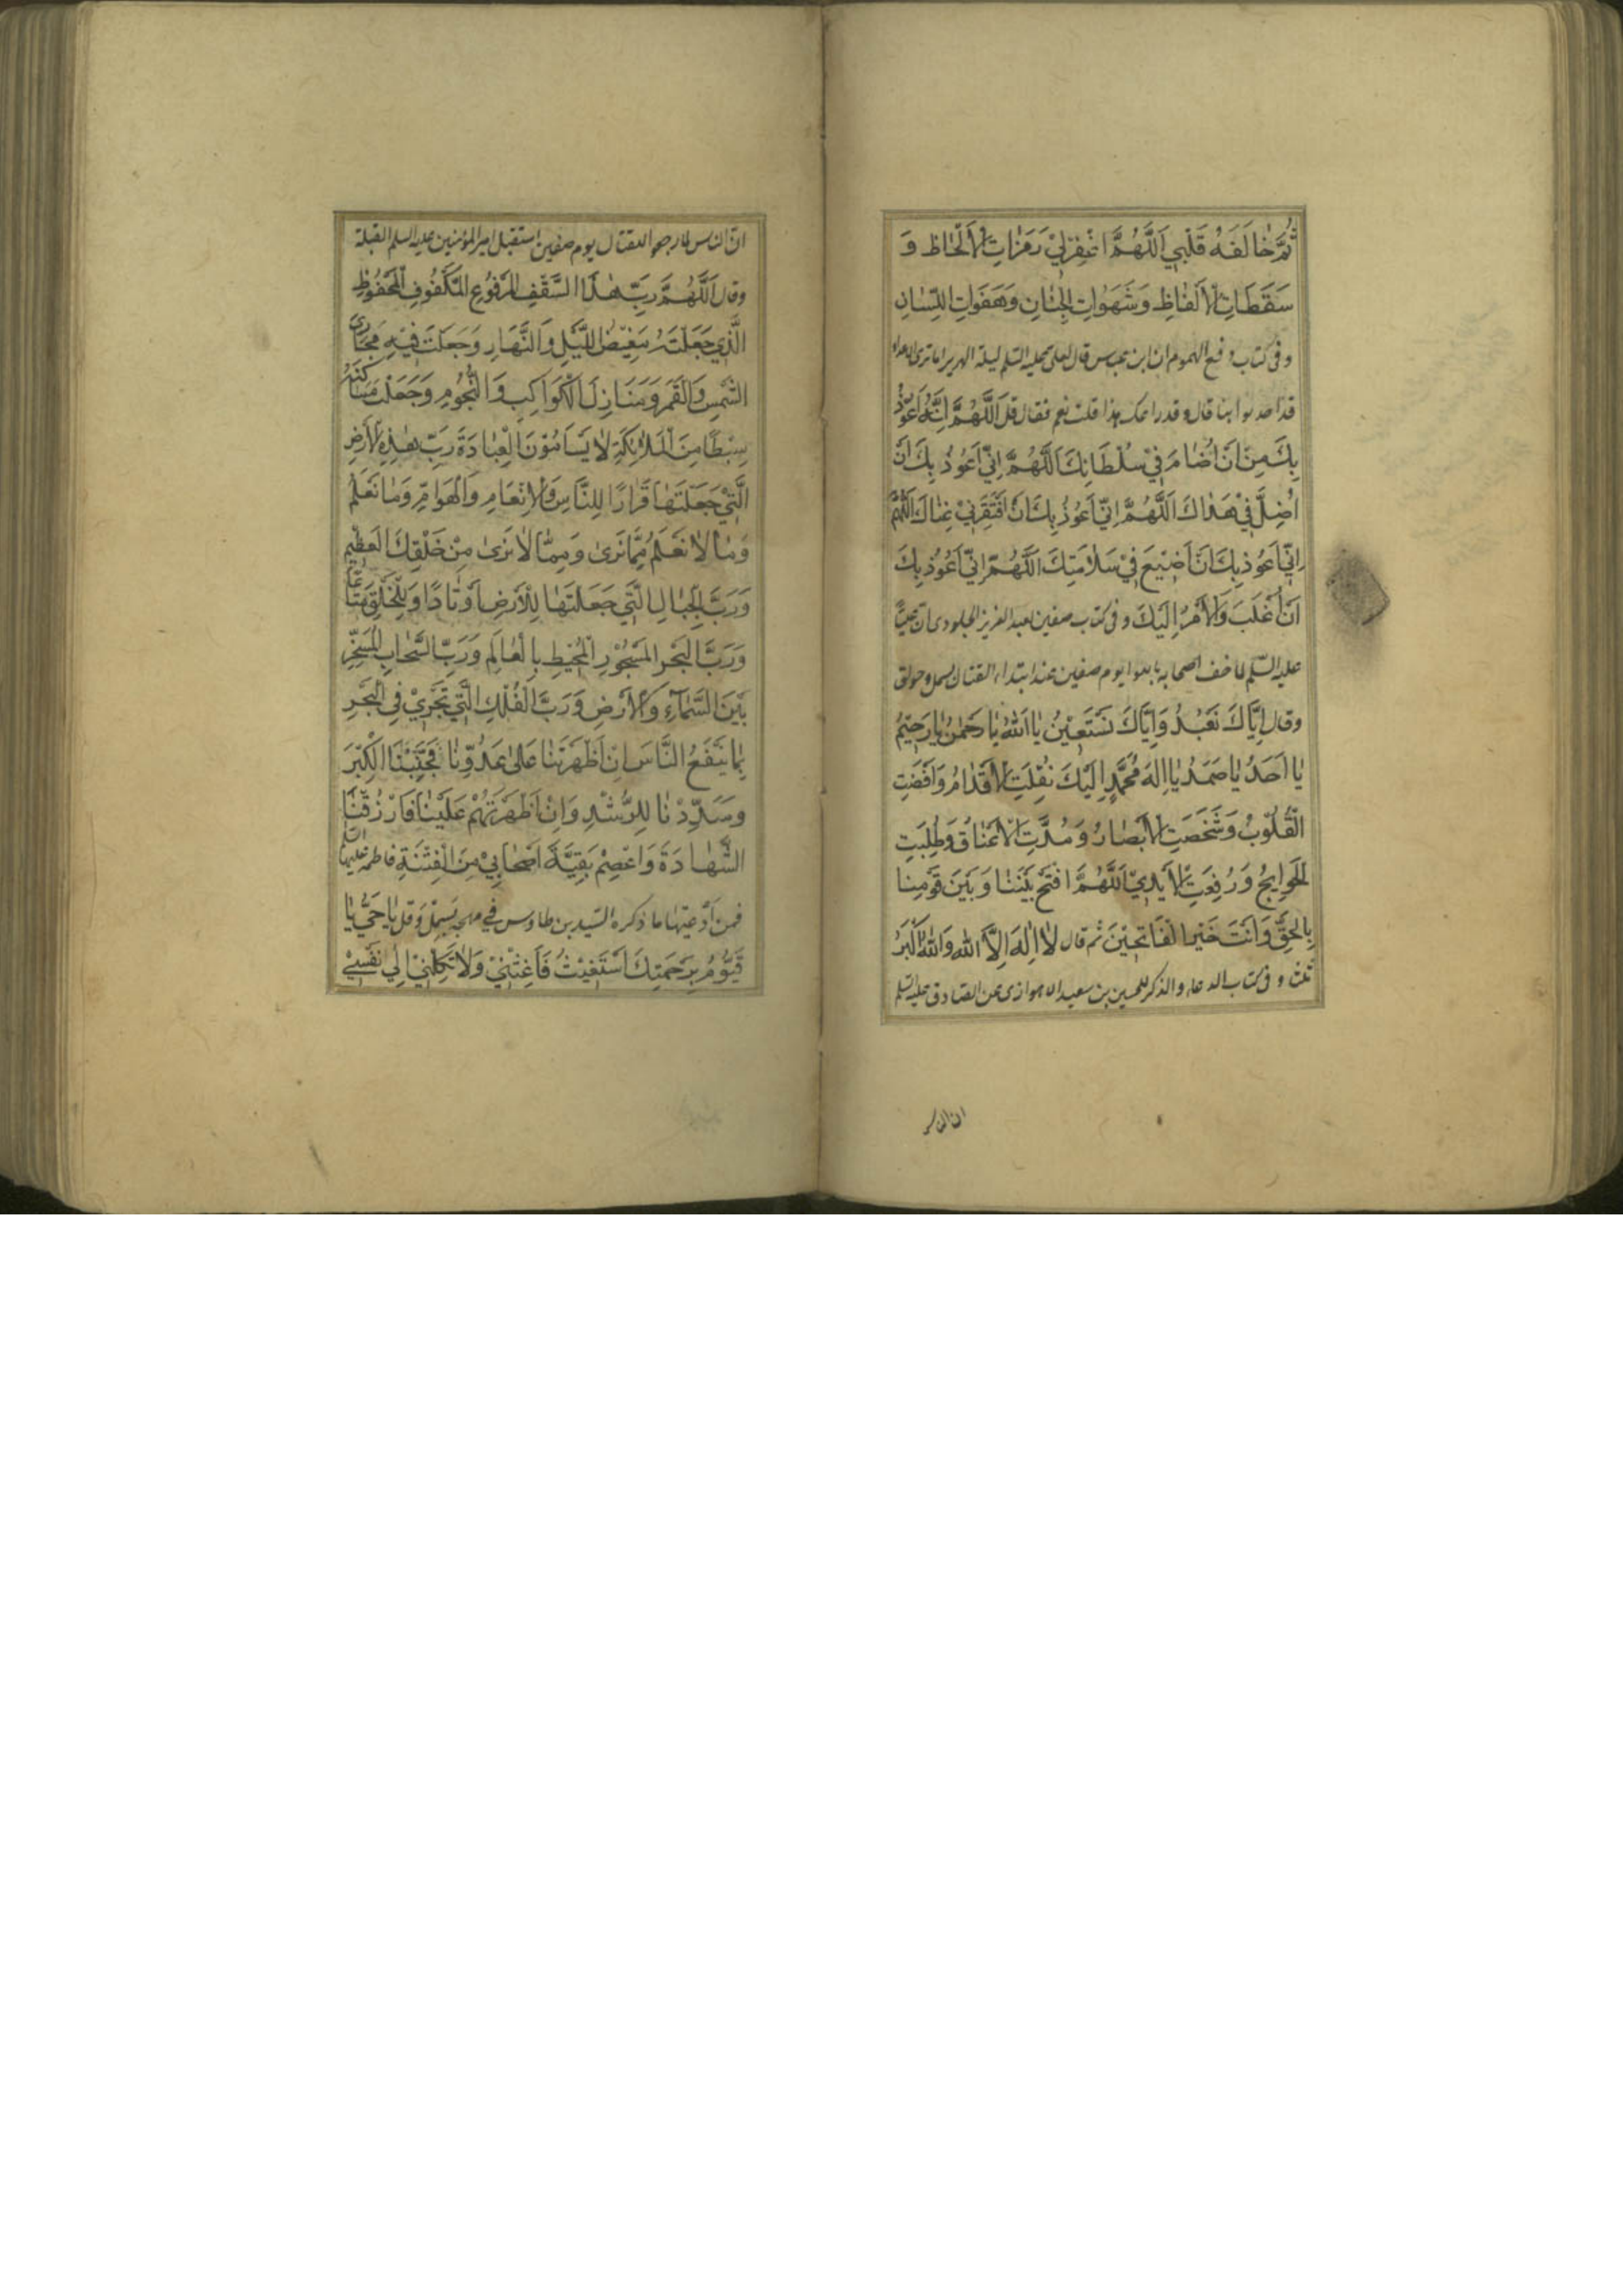 ثُمَّ خَالَفَهُ قَلْبِي اَللّٰهُمَّ اغْفِرْ لِيْ رَمَزَاتِ الْاَلْحَاظِ وَ
سَقَطَاتِ الْاَلْفَاظِ وَشَهَوَاتِ الْجَنَانِ وَهَفَوَاتِ اللِّسَانِ
و فى كتاب دفع الهموم ان ابن عباس قال لعلى عليه السّلم ليلة الهرير اما ترى الاعداء
قد احدقوا بنا قال و قد راعك هذا قلت نعم فقال قل اَللّٰهُمَّ اِنِّيْ اَعُوْذُ
بِكَ مِنْ اَنْ اُضَامَ فِيْ سُلْطَانِكَ اَللّٰهُمَّ اِنِّيْ اَعُوذُ بِكَ اَنْ
اَضِلَّ فِيْ هُدَاكَ اَللّٰهُمَّ اِنِّيْ اَعُوذُ بِكَ اَنْ اَفْتَقِرَ فِيْ غِنَاكَ اللّٰهُمَّ
اِنِّيْ اَعُوْذُ بِكَ اَنْ اَضِيْعَ فِيْ سَلَامَتِكَ اَللّٰهُمَّ اِنِّيْ اَعُوْذُ بِكَ
اَنْ اُغْلَبَ وَالْاَمْرُ اِلَيْكَ و فى كتاب صفين لعبد العزيز الجلودى انّ عليّا
عليه السّلم لما خف اصحابه يوم صفين عند ابتداء القتال بسمل و حولق
وقال اِيَّاكَ نَعْبُدُ وَاِيَّاكَ نَسْتَعِيْنُ يَا اَللّٰهُ يَا رَحْمٰنُ يَا رَحِيْمُ
يَا اَحَدُ يَا صَمَدُ يَا اِلٰهَ مُحَمَّدٍ اِلَيْكَ نُقِلَتِ الْاَقْدَامُ وَاَفْضَتِ
الْقُلُوْبُ وَشَخَصَتِ الْاَبْصَارُ وَمُدَّتِ الْاَعْنَاقُ وَطُلِبَتِ
الْحَوَائِجُ وَرُفِعَتِ الْاَيْدِيْ اَللّٰهُمَّ افْتَحْ بَيْنَنَا وَبَيْنَ قَوْمِنَا
بِالْحَقِّ وَاَنْتَ خَيْرُ الْفَاتِحِيْنَ ثم قال لَا اِلٰهَ اِلَّا اللّٰهُ وَاللّٰهُ اَكْبَرُ
ثلثا و فى كتاب الدعاء و الذكر للحسين بن سعيد الاهوازى عن الصّادق عليه السّلم
ان الناس
انّ الناس لما رجعوا للقتال يوم صفين استقبل امير المؤمنين عليه السلم القبلة
وقال اَللّٰهُمَّ رَبَّ هٰذَا السَّقْفِ الْمَرْفُوْعِ الْمَكْفُوفِ الْمَحْفُوْظِ
الَّذِيْ جَعَلْتَهُ مَغِيْضَ اللَّيْلِ وَالنَّهَارِ وَجَعَلْتَ فِيْهِ مَجَارِىَ
الشَّمْسِ وَالْقَمَرِ وَمَنَازِلَ الْكَوَاكِبِ وَالنُّجُوْمِ وَجَعَلْتَ سَاكِنَهُ
سِبْطًا مِنَ الْمَلَائِكَةِ لَا يَسْأَمُوْنَ الْعِبَادَةَ رَبِّ هٰذِهِ الْاَرْضِ
الَّتِيْ جَعَلْتَهَا قَرَارًا لِلنَّاسِ وَالْاَنْعَامِ وَالْهَوَامِّ وَمَا نَعْلَمُ
وَمَا لَا نَعْلَمُ مِمَّا نَرَىٰ وَمِمَّا لَا نَرَىٰ مِنْ خَلْقِكَ الْعَظِيْمِ
وَرَبَّ الْجِبَالِ الَّتِيْ جَعَلْتَهَا لِلْاَرْضِ اَوْتَادًا وَلِلْخَلْقِ مَتَاعًا
وَرَبَّ الْبَحْرِ الْمَسْجُوْرِ الْمُحِيْطِ بِالْعَالَمِ وَرَبَّ السَّحَابِ الْمُسَخَّرِ
بَيْنَ السَّمَاءِ وَالْاَرْضِ وَرَبَّ الْفُلْكِ الَّتِيْ تَجْرِيْ فِي الْبَحْرِ
بِمَا يَنْفَعُ النَّاسَ اِنْ اَظْهَرْتَنَا عَلٰى عَدُوِّنَا فَجَنِّبْنَا الْكِبْرَ
وَسَدِّدْنَا لِلرُّشْدِ وَاِنْ اَظْهَرْتَهُمْ عَلَيْنَا فَارْزُقْنَا
الشَّهَادَةَ وَاعْصِمْ بَقِيَّةَ اَصْحَابِيْ مِنَ الْفِتْنَةِ فاطمة عليها السّلم
فمن اَدْعيتها ما ذكره السّيد بن طاوس في مهجه بَسمِلْ وَقُلْ يَا حَيُّ يَا
قَيُّوْمُ بِرَحْمَتِكَ اَسْتَغِيْثُ فَاَغِثْنِيْ وَلَا تَكِلْنِيْ اِلٰى نَفْسِيْ